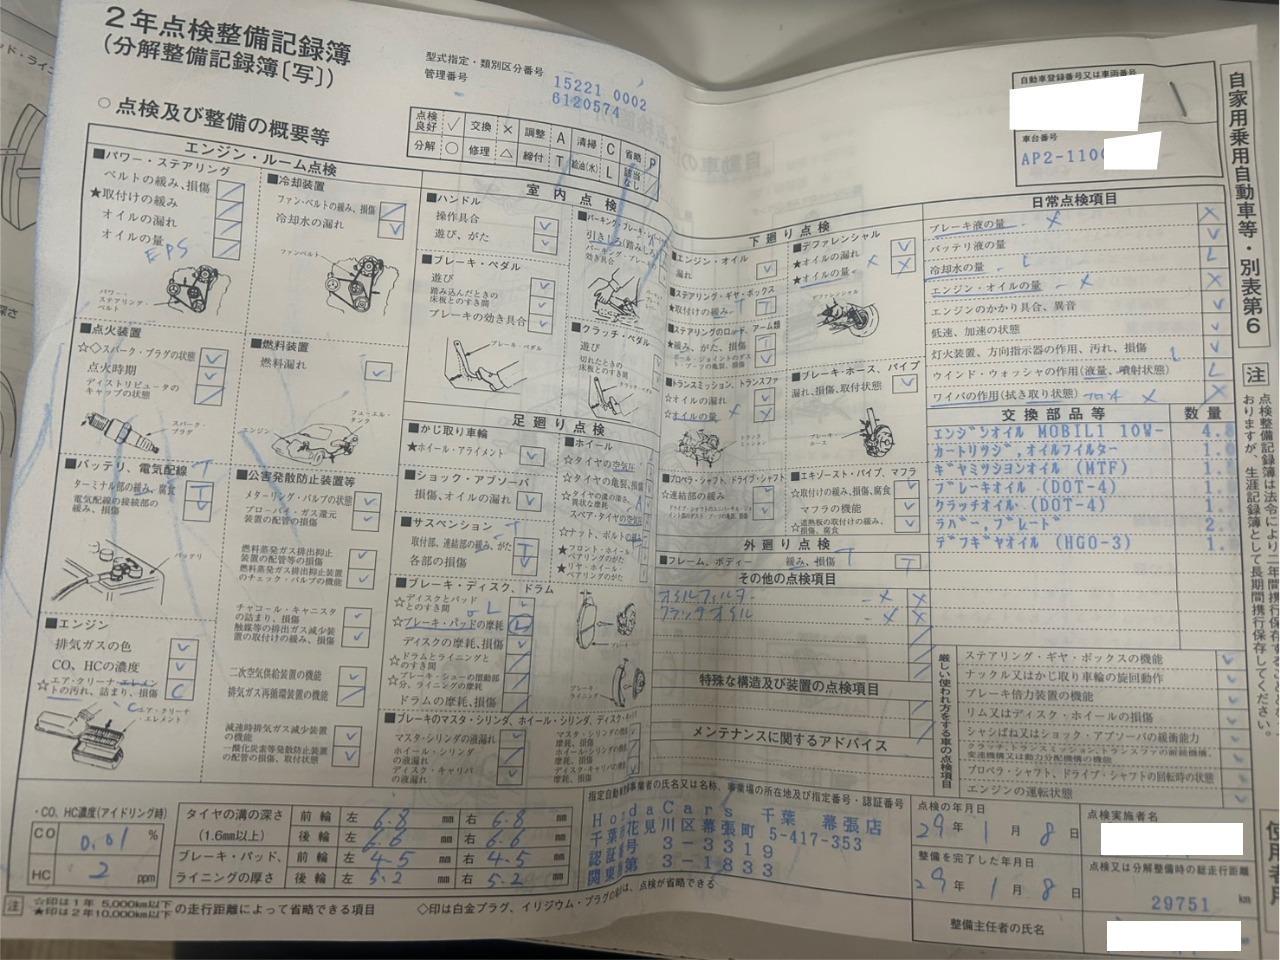 2年点検整備記録簿
(分解整備記録簿〔写〕)
型式指定・類別区分番号
管理番号
15221 0002
6120574
自動車登録番号又は車両番号
車台番号
AP2-110
自家用乗用自動車等・別表第6
○点検及び整備の概要等
点検良好 ✓ 交換 × 調整 A 清掃 C 省略 P
分解 ○ 修理 △ 締付 T 給油(水) L 該当なし /
エンジン・ルーム点検
■パワー・ステアリング
ベルトの緩み、損傷
★取付けの緩み
オイルの漏れ
オイルの量
EPS
パワー・ステアリング・ベルト
■冷却装置
ファン・ベルトの緩み、損傷
冷却水の漏れ
ファンベルト
■点火装置
☆◇スパーク・プラグの状態
点火時期
ディストリビュータのキャップの状態
スパーク・プラグ
■燃料装置
燃料漏れ
フューエル・タンク
エンジン
■バッテリ、電気配線
ターミナル部の緩み、腐食 T
電気配線の接続部の緩み、損傷
バッテリ
■公害発散防止装置等
メターリング・バルブの状態
ブローバイ・ガス還元装置の配管の損傷
燃料蒸発ガス排出抑止装置の配管等の損傷
燃料蒸発ガス排出抑止装置のチェック・バルブの機能
チャコール・キャニスタの詰まり、損傷
触媒等の排出ガス減少装置の取付けの緩み、損傷
二次空気供給装置の機能
排気ガス再循環装置の機能
減速時排気ガス減少装置の機能
一酸化炭素等発散防止装置の配管の損傷、取付状態
■エンジン
排気ガスの色
CO、HCの濃度
☆エア・クリーナ・エレメントの汚れ、詰まり、損傷 C
エア・クリーナ・エレメント
室内点検
■ハンドル
操作具合
遊び、がた
■ブレーキ・ペダル
遊び
踏み込んだときの床板とのすき間
ブレーキの効き具合
ブレーキ・ペダル
■パーキング・ブレーキ・レバー
引きしろ(踏みしろ)
パーキング・ブレーキの効き具合
■クラッチ・ペダル
遊び
切れたときの床板とのすき間
足廻り点検
■かじ取り車輪
★ホイール・アライメント
■ショック・アブソーバ
損傷、オイルの漏れ
■サスペンション
取付部、連結部の緩み、がた T
各部の損傷
■ホイール
☆タイヤの空気圧
☆タイヤの亀裂、損傷
☆タイヤの溝の深さ、異状な摩耗
スペア・タイヤの空気圧
☆ナット、ボルトの緩み
★フロント・ホイール・ベアリングのがた
★リヤ・ホイール・ベアリングのがた
■ブレーキ・ディスク、ドラム
☆ディスクとパッドとのすき間
☆ブレーキ・パッドの摩耗 L
ディスクの摩耗、損傷
☆ドラムとライニングとのすき間
☆ブレーキ・シューの摺動部分、ライニングの摩耗
ドラムの摩耗、損傷
■ブレーキのマスタ・シリンダ、ホイール・シリンダ、ディスク・キャリパ
マスタ・シリンダの液漏れ
ホイール・シリンダの液漏れ
ディスク・キャリパの液漏れ
下廻り点検
■エンジン・オイル
漏れ
■ステアリング・ギヤ・ボックス
★取付けの緩み T
■ステアリングのロッド、アーム類
★緩み、がた、損傷 T
ボール・ジョイントのダスト・ブーツの亀裂、損傷
■トランスミッション、トランスファ
☆オイルの漏れ
☆オイルの量 ×
■プロペラ・シャフト、ドライブ・シャフト
☆連結部の緩み
■デファレンシャル
★オイルの漏れ
★オイルの量 × ×
デファレンシャル
■ブレーキ・ホース、パイプ
漏れ、損傷、取付状態
ブレーキ・ホース
■エキゾースト・パイプ、マフラ
☆取付けの緩み、損傷、腐食
マフラの機能
☆遮熱板の取付けの緩み、損傷、腐食
外廻り点検
■フレーム、ボディー 緩み、損傷 T
その他の点検項目
オイルフィルター × ×
クラッチオイル × ×
特殊な構造及び装置の点検項目
メンテナンスに関するアドバイス
日常点検項目
ブレーキ液の量 ×
バッテリ液の量
冷却水の量 L
エンジン・オイルの量 ×
エンジンのかかり具合、異音
低速、加速の状態
灯火装置、方向指示器の作用、汚れ、損傷
ウインド・ウォッシャの作用(液量、噴射状態) L
ワイパの作用(拭き取り状態) フロント ×
交換部品等 数量
エンジンオイル MOBIL1 10W-
カートリッジ,オイルフィルター
ギヤミツシヨンオイル (MTF)
ブレーキオイル (DOT-4)
クラッチオイル (DOT-4)
ラバー,ブレード
デフギヤオイル (HGO-3)
厳しい使われ方をする車の点検項目
ステアリング・ギヤ・ボックスの機能
ナックル又はかじ取り車輪の旋回動作
ブレーキ倍力装置の機能
リム又はディスク・ホイールの損傷
シャシばね又はショック・アブソーバの緩衝能力
クラッチ、トランスミッション、トランスファの前続機構、変速機構又は動力分配機構の機能
プロペラ・シャフト、ドライブ・シャフトの回転時の状態
エンジンの運転状態
注 点検整備記録簿は法令により二年間携行保存しておりますが、生涯記録簿として長期間携行保存してください。
・CO、HC濃度(アイドリング時)
CO 0.01 %
HC 2 ppm
タイヤの溝の深さ(1.6mm以上) 前輪 左 6.8 mm 右 6.8 mm
後輪 左 6.6 mm 右 6.6 mm
ブレーキ・パッド、ライニングの厚さ 前輪 左 4.5 mm 右 4.5 mm
後輪 左 5.2 mm 右 5.2 mm
注 ☆印は1年 5,000km以下 ★印は2年10,000km以下 の走行距離によって省略できる項目
◇印は白金プラグ、イリジウム・プラグの場合は、点検が省略できる
指定自動車整備事業者の氏名又は名称、事業場の所在地及び指定番号・認証番号
HondaCars 千葉 幕張店
千葉 花見川区幕張町 5-417-353
認証番号 3-3319
関東 第 3-1833
点検の年月日
29年 1月 8日
整備を完了した年月日
29年 1月 8日
点検実施者名
点検又は分解整備時の総走行距離
29751 km
整備主任者の氏名